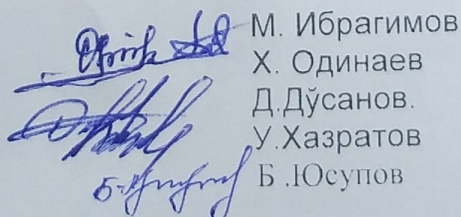 М. Ибрагимов
Х. Одинаев
Д.Дўсанов.
У.Хазратов
Б .Юсупов